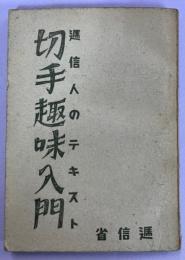 遞信人のテキスト
切手趣味入門
遞信省